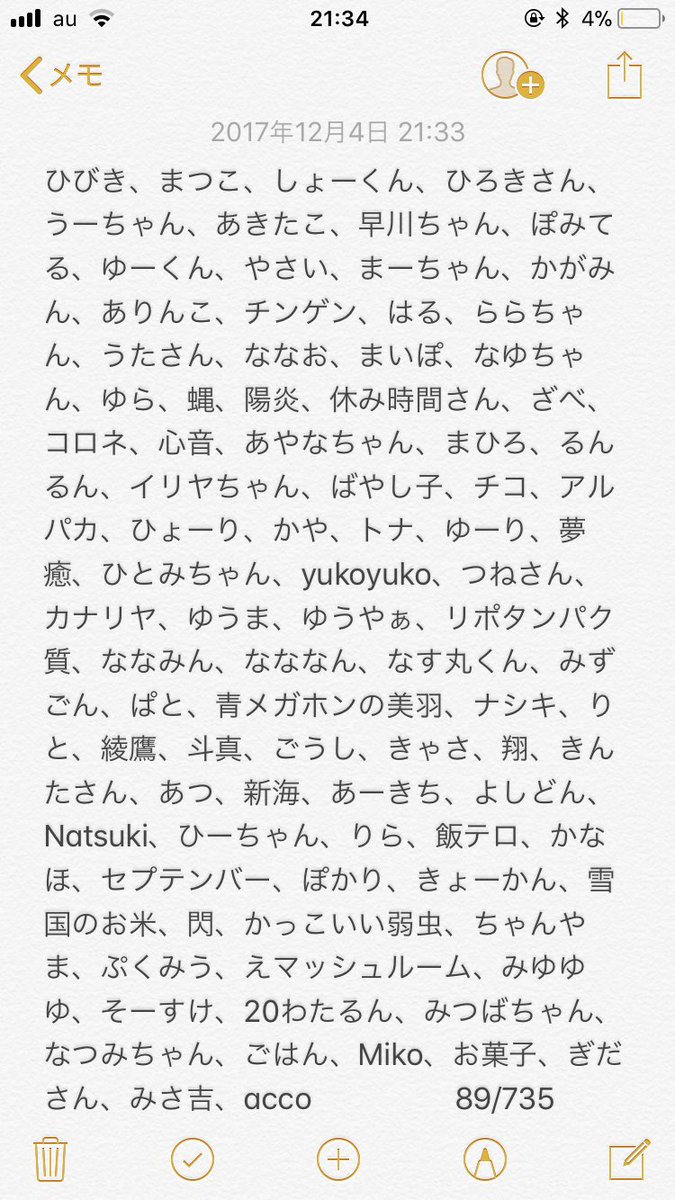 au 21:34 4%
メモ
2017年12月4日 21:33
ひびき、まつこ、しょーくん、ひろきさん、
うーちゃん、あきたこ、早川ちゃん、ぽみて
る、ゆーくん、やさい、まーちゃん、かがみ
ん、ありんこ、チンゲン、はる、ららちゃ
ん、うたさん、ななお、まいぽ、なゆちゃ
ん、ゆら、蝿、陽炎、休み時間さん、ざべ、
コロネ、心音、あやなちゃん、まひろ、るん
るん、イリヤちゃん、ばやし子、チコ、アル
パカ、ひょーり、かや、トナ、ゆーり、夢
癒、ひとみちゃん、yukoyuko、つねさん、
カナリヤ、ゆうま、ゆうやぁ、リポタンパク
質、ななみん、なななん、なす丸くん、みず
ごん、ぱと、青メガホンの美羽、ナシキ、り
と、綾鷹、斗真、ごうし、きゃさ、翔、きん
たさん、あつ、新海、あーきち、よしどん、
Natsuki、ひーちゃん、りら、飯テロ、かな
ほ、セプテンバー、ぽかり、きょーかん、雪
国のお米、閃、かっこいい弱虫、ちゃんや
ま、ぷくみう、えマッシュルーム、みゆゆ
ゆ、そーすけ、20わたるん、みつばちゃん、
なつみちゃん、ごはん、Miko、お菓子、ぎだ
さん、みさ吉、acco 89/735